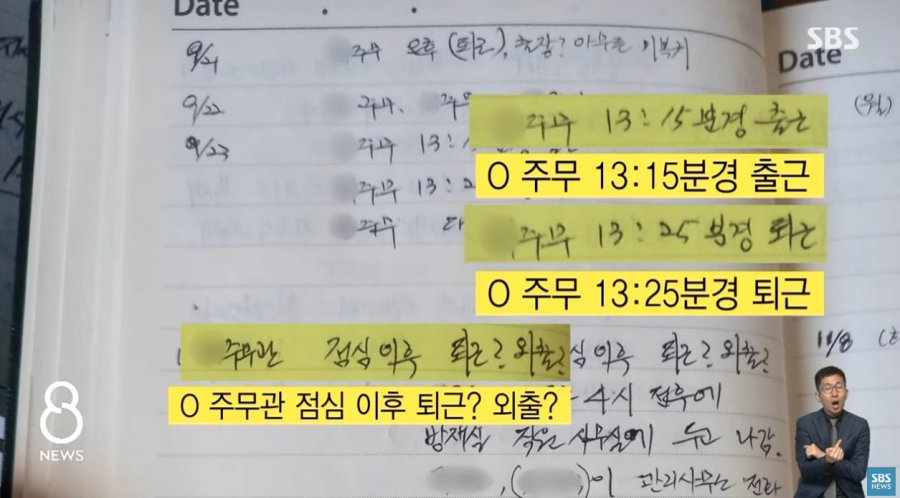 Date
SBS
Date
9/21 주무 오후 (퇴근), 출장? 아무튼 미복귀
(월)
9/22 주무. 주무
주무 13:15분경 출근
9/23 주무 13:1
O 주무 13:15분경 출근
주무 13:2
주무 13:25분경 퇴근
주무 다
O 주무 13:25분경 퇴근
주무관 점심이후 퇴근? 외출? 심이후 퇴근? 외출?
11/8
O 주무관 점심 이후 퇴근? 외출?
4시 전후에
8 NEWS
방재실 작은 사무실에 두고 나감.
이 관리사무는 전화
SBS NEWS